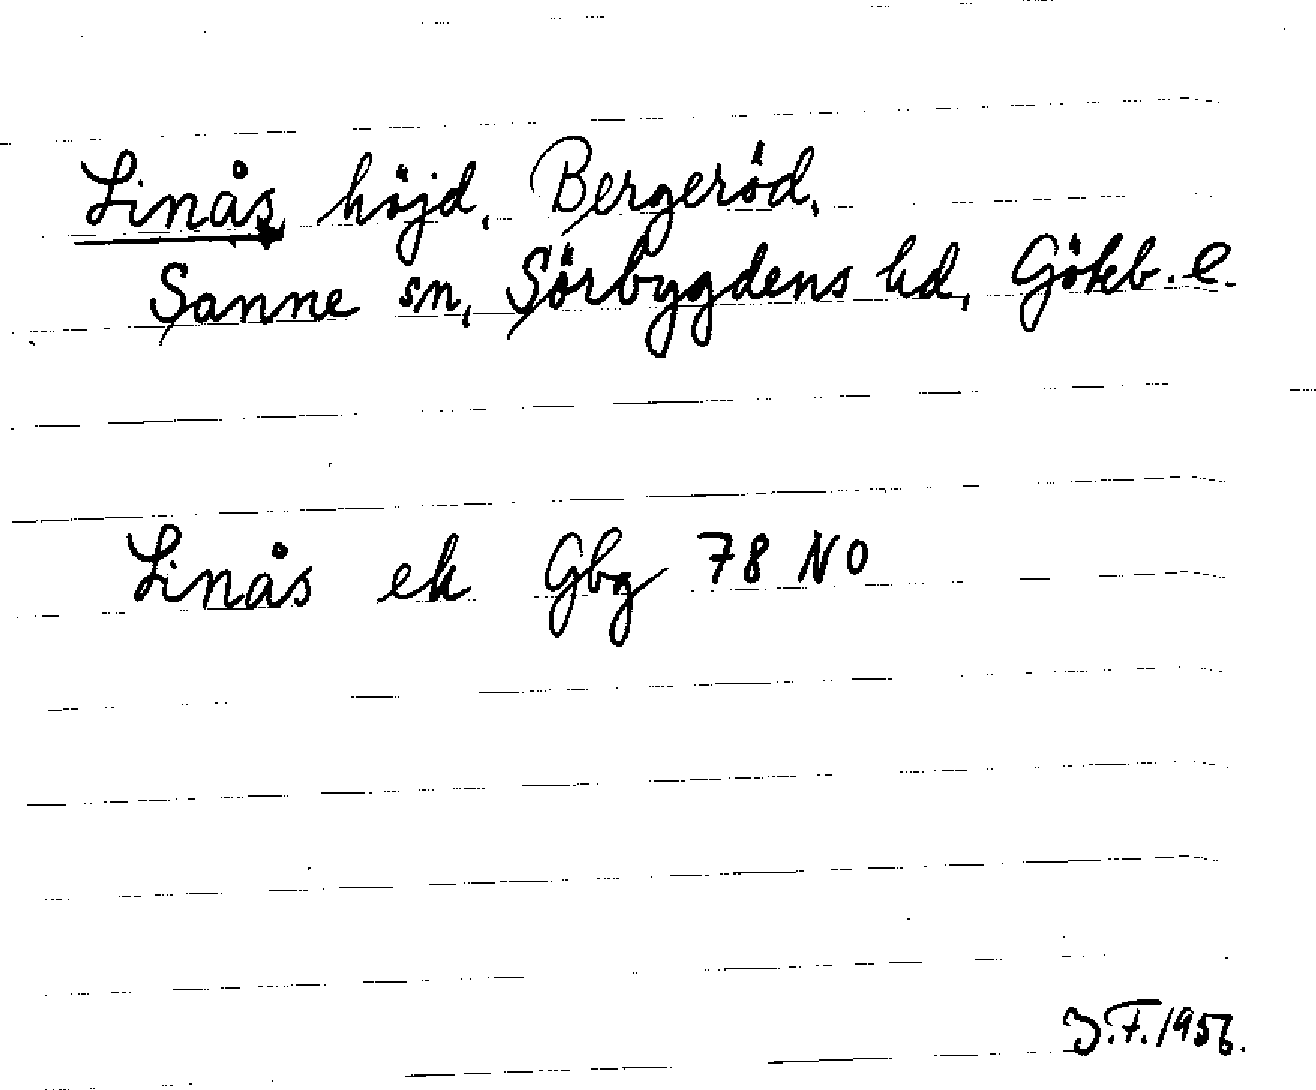 Linås höjd, Bergeröd,
Sanne sn, Sörbygdens hd, Göteb. l.
Linås ek Gbg 78 NO
J.F. 1956.